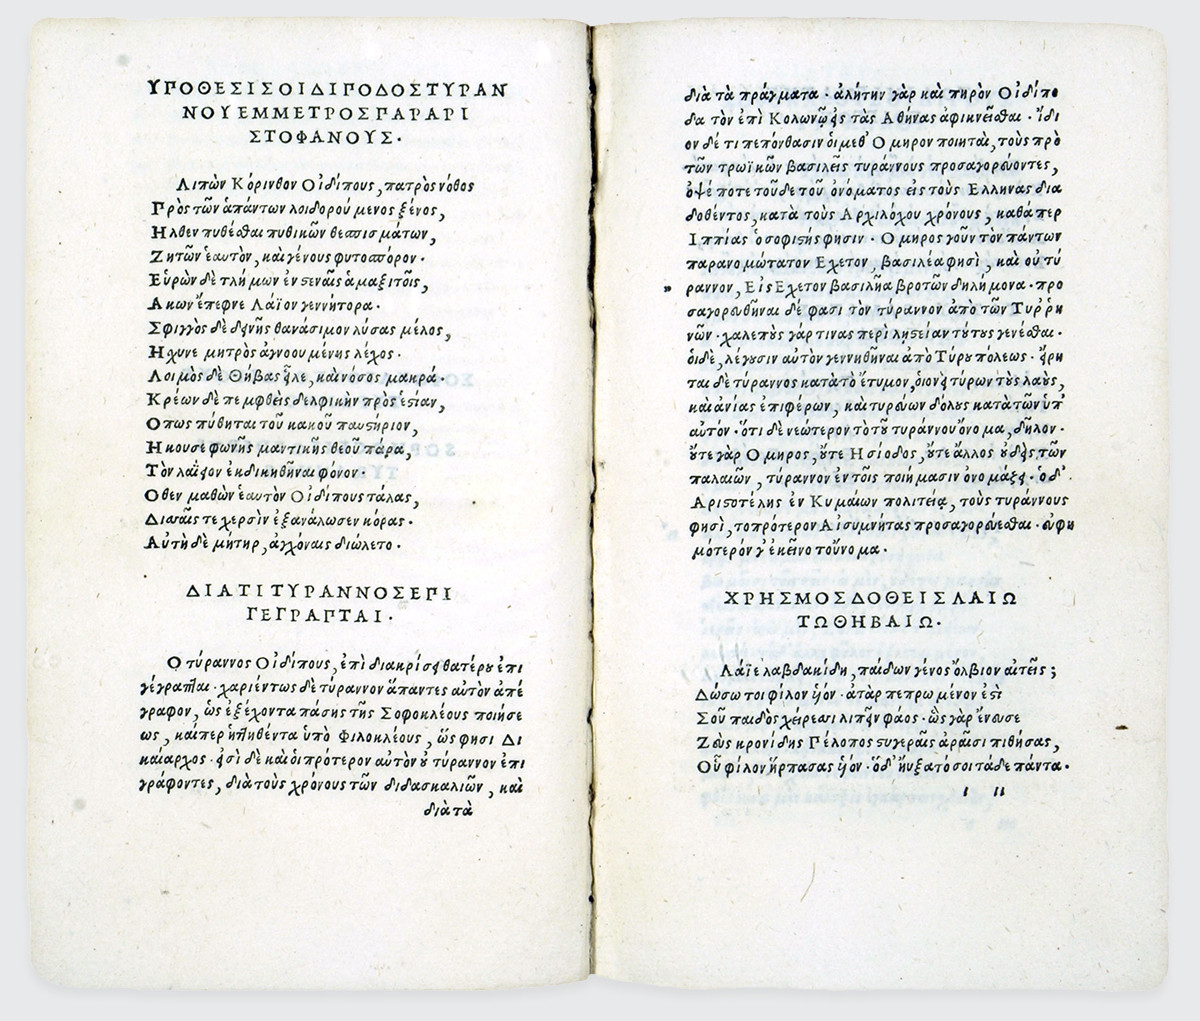 ΥΠΟΘΕΣΙΣ ΟΙΔΙΠΟΔΟΣ ΤΥΡΑΝ
ΝΟΥ ΕΜΜΕΤΡΟΣ ΠΑΡ ΑΡΙ
ΣΤΟΦΑΝΟΥΣ·
Λιπὼν Κόρινθον Οἰδίπους, πατρὸς νόθος
Πρὸς τῶν ἁπάντων λοιδορούμενος ξένος,
Ηλθεν πυθέσθαι πυθικῶν θεσπισμάτων,
Ζητῶν ἑαυτὸν, καὶ γένους φυτοσπόρον·
Εὑρὼν δὲ τλήμων ἐν στεναῖς ἁμαξιτοῖς,
Ακων ἔπεφνε Λάϊον γεννήτορα·
Σφιγγὸς δὲ δεινῆς θανάσιμον λύσας μέλος,
Ησχυνε μητρὸς ἀγνοουμένης λέχος·
Λοιμὸς δὲ Θήβας εἷλε, καὶ νόσος μακρά·
Κρέων δὲ πεμφθεὶς δελφικὴν πρὸς ἑστίαν,
Οπως πύθηται τοῦ κακοῦ παυστήριον,
Ηκουσε φωνῆς μαντικῆς θεοῦ πάρα,
Τὸν λαΐειον ἐκδικηθῆναι φόνον·
Οθεν μαθὼν ἑαυτὸν Οἰδίπους τάλας,
Δισσαῖς τε χερσὶν ἐξανάλωσεν κόρας·
Αὐτὴ δὲ μήτηρ, ἀγχόναις διώλετο·
ΔΙΑΤΙ ΤΥΡΑΝΝΟΣ ΕΠΙ
ΓΕΓΡΑΠΤΑΙ·
Ο τύραννος Οἰδίπους, ἐπὶ διακρίσει θατέρου ἐπι
γέγραπται· χαριέντως δὲ τύραννον ἅπαντες αὐτὸν ἀπέ
γραφον, ὡς ἐξέχοντα πάσης τῆς Σοφοκλέους ποιήσε
ως, καίπερ ἡττηθέντα ὑπὸ Φιλοκλέους, ὥς φησι Δι
καίαρχος· εἰσὶ δὲ καὶ οἱ πρότερον αὐτὸν οὐ τύραννον ἐπι
γράφοντες, διὰ τοὺς χρόνους τῶν διδασκαλιῶν, καὶ
διὰ τὰ
διὰ τὰ πράγματα· ἀλήτην γὰρ καὶ πηρὸν Οἰδίπο
δα τὸν ἐπὶ Κολωνῷ εἰς τὰς Αθήνας ἀφικνεῖσθαι· ἴδι
ον δέ τι πεπόνθασιν οἱ μεθ' Ομηρον ποιηταὶ, τοὺς πρὸ
τῶν τρωϊκῶν βασιλεῖς τυράννους προσαγορεύοντες,
ὀψέ ποτε τοῦδε τοῦ ὀνόματος εἰς τοὺς Ελληνας δια
δοθέντος, κατὰ τοὺς Αρχιλόχου χρόνους, καθάπερ
Ιππίας ὁ σοφιστής φησιν· Ομηρος γοῦν τὸν πάντων
παρανομώτατον Εχετον, βασιλέα φησὶ, καὶ οὐ τύ
» ραννον, Εἰς Εχετον βασιλῆα βροτῶν δηλήμονα· προ
σαγορευθῆναι δέ φασι τὸν τύραννον ἀπὸ τῶν Τυῤῥη
νῶν· χαλεποὺς γάρ τινας περὶ ληστείαν τούτους γενέσθαι·
οἱ δὲ, λέγουσιν αὐτὸν γεννηθῆναι ἀπὸ Τύρου πόλεως· εἴρη
ται δὲ τύραννος κατὰ τὸ ἔτυμον, οἱονεὶ τύρων τοὺς λαοὺς,
καὶ ἀνίας ἐπιφέρων, καὶ τυρεύων δόλους κατὰ τῶν ὑπ'
αὐτόν· ὅτι δὲ νεώτερον τὸ τοῦ τυράννου ὄνομα, δῆλον·
οὔτε γὰρ Ομηρος, οὔτε Ησίοδος, οὔτε ἄλλος οὐδεὶς τῶν
παλαιῶν, τύραννον ἐν τοῖς ποιήμασιν ὀνομάζει· ὁ δ'
Αριστοτέλης ἐν Κυμαίων πολιτείᾳ, τοὺς τυράννους
φησὶ, τοπρότερον Αἰσυμνήτας προσαγορεύεσθαι· εὐφη
μότερόν γ' ἐκεῖνο τοὔνομα·
ΧΡΗΣΜΟΣ ΔΟΘΕΙΣ ΛΑΙΩ
ΤΩ ΘΗΒΑΙΩ·
Λάϊε λαβδακίδη, παίδων γένος ὄλβιον αἰτεῖς;
Δώσω τοι φίλον υἱόν· ἀτὰρ πεπρωμένον ἐστὶ
Σοῦ παιδὸς χείρεσσι λιπεῖν φάος· ὣς γὰρ ἔνευσε
Ζεὺς κρονίδης Πέλοπος στυγεραῖς ἀραῖσι πιθήσας,
Οὗ φίλον ἥρπασας υἱόν· ὁ δ' ηὔξατό σοι τάδε πάντα·
ι ιι